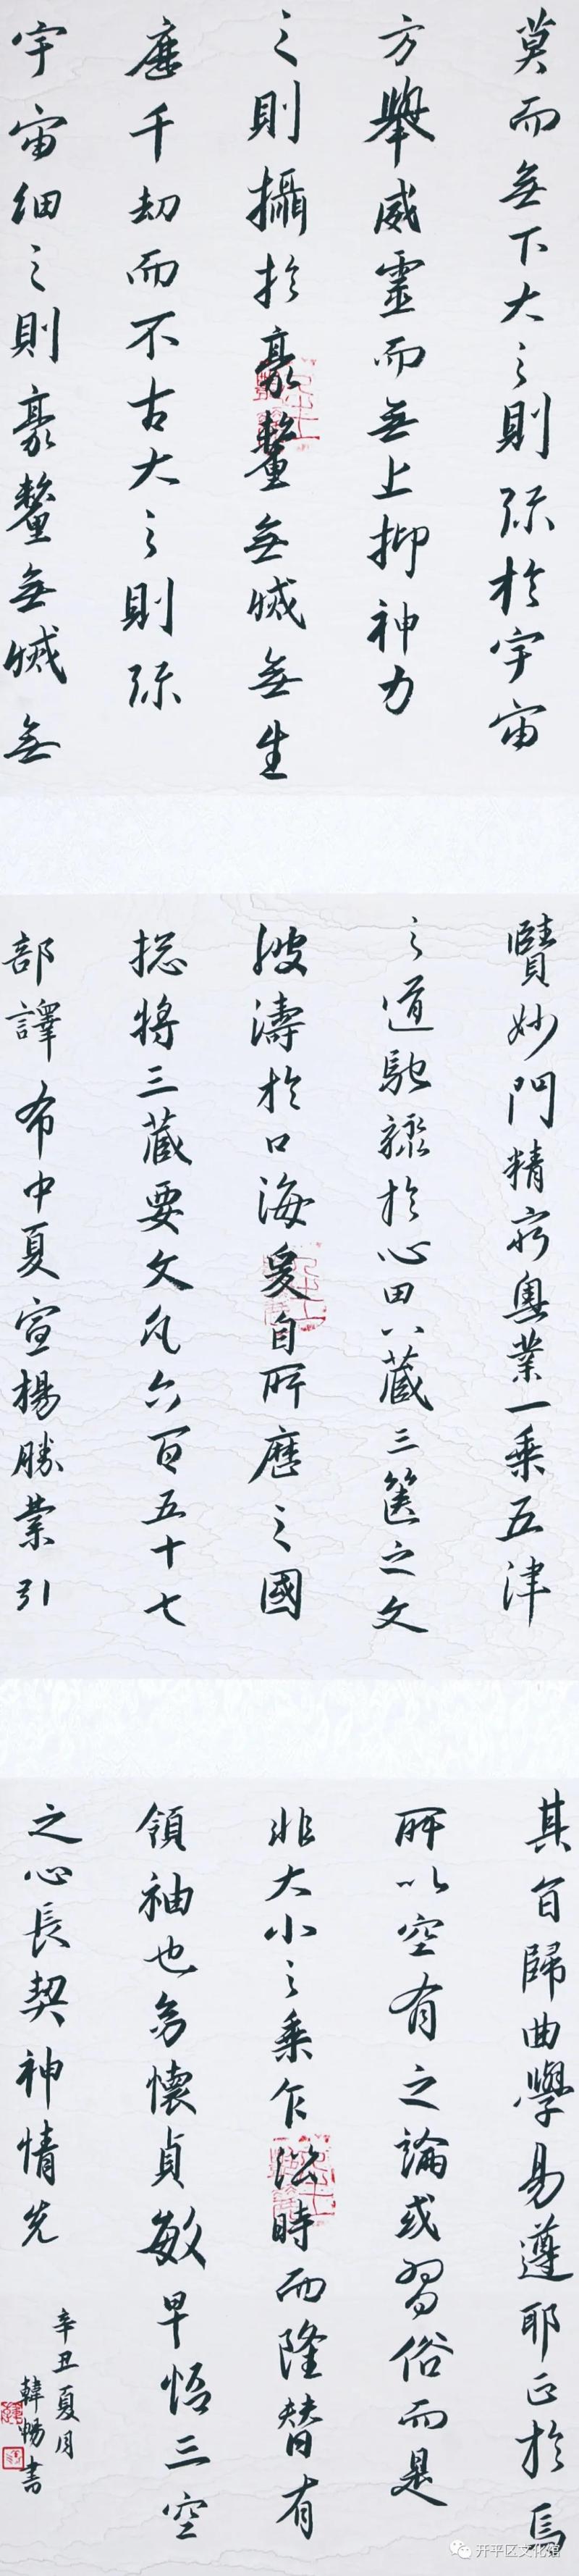 莫而無下大之則弥於宇宙
方舉威靈而無上抑神力
之則攝於豪釐無滅無生
歷千劫而不古大之則弥
宇宙細之則豪釐無滅無
賾妙門精窮奧業一乘五津
之道馳驟於心田八藏三篋之文
波濤於口海爰自所歷之國
捴將三藏要文凡六百五十七
部譯布中夏宣揚勝業引
其旨歸曲學易遵耶正於焉
所以空有之論或習俗而是
非大小之乘乍沿時而隆替有
領袖也幼懷貞敏早悟三空
之心長契神情先
辛丑夏月
韓暢書
开平区文化馆